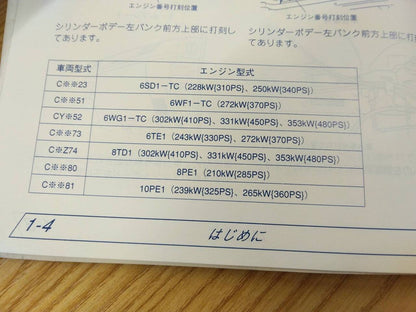 エンジン番号打刻位置
エンジン番号打刻位置
シリンダーボデー左バンク前方上部に打刻し
てあります。
シリンダーボデー左バンク前方上部に
てあります。
車両型式 エンジン型式
C※※23 6SD1-TC (228kW{310PS}、250kW{340PS})
C※※51 6WF1-TC (272kW{370PS})
CY※52 6WG1-TC (302kW{410PS}、331kW{450PS}、353kW{480PS})
C※※73 6TE1 (243kW{330PS}、272kW{370PS})
C※Z74 8TD1 (302kW{410PS}、331kW{450PS}、353kW{480PS})
C※※80 8PE1 (210kW{285PS})
C※※81 10PE1 (239kW{325PS}、265kW{360PS})
1-4 はじめに